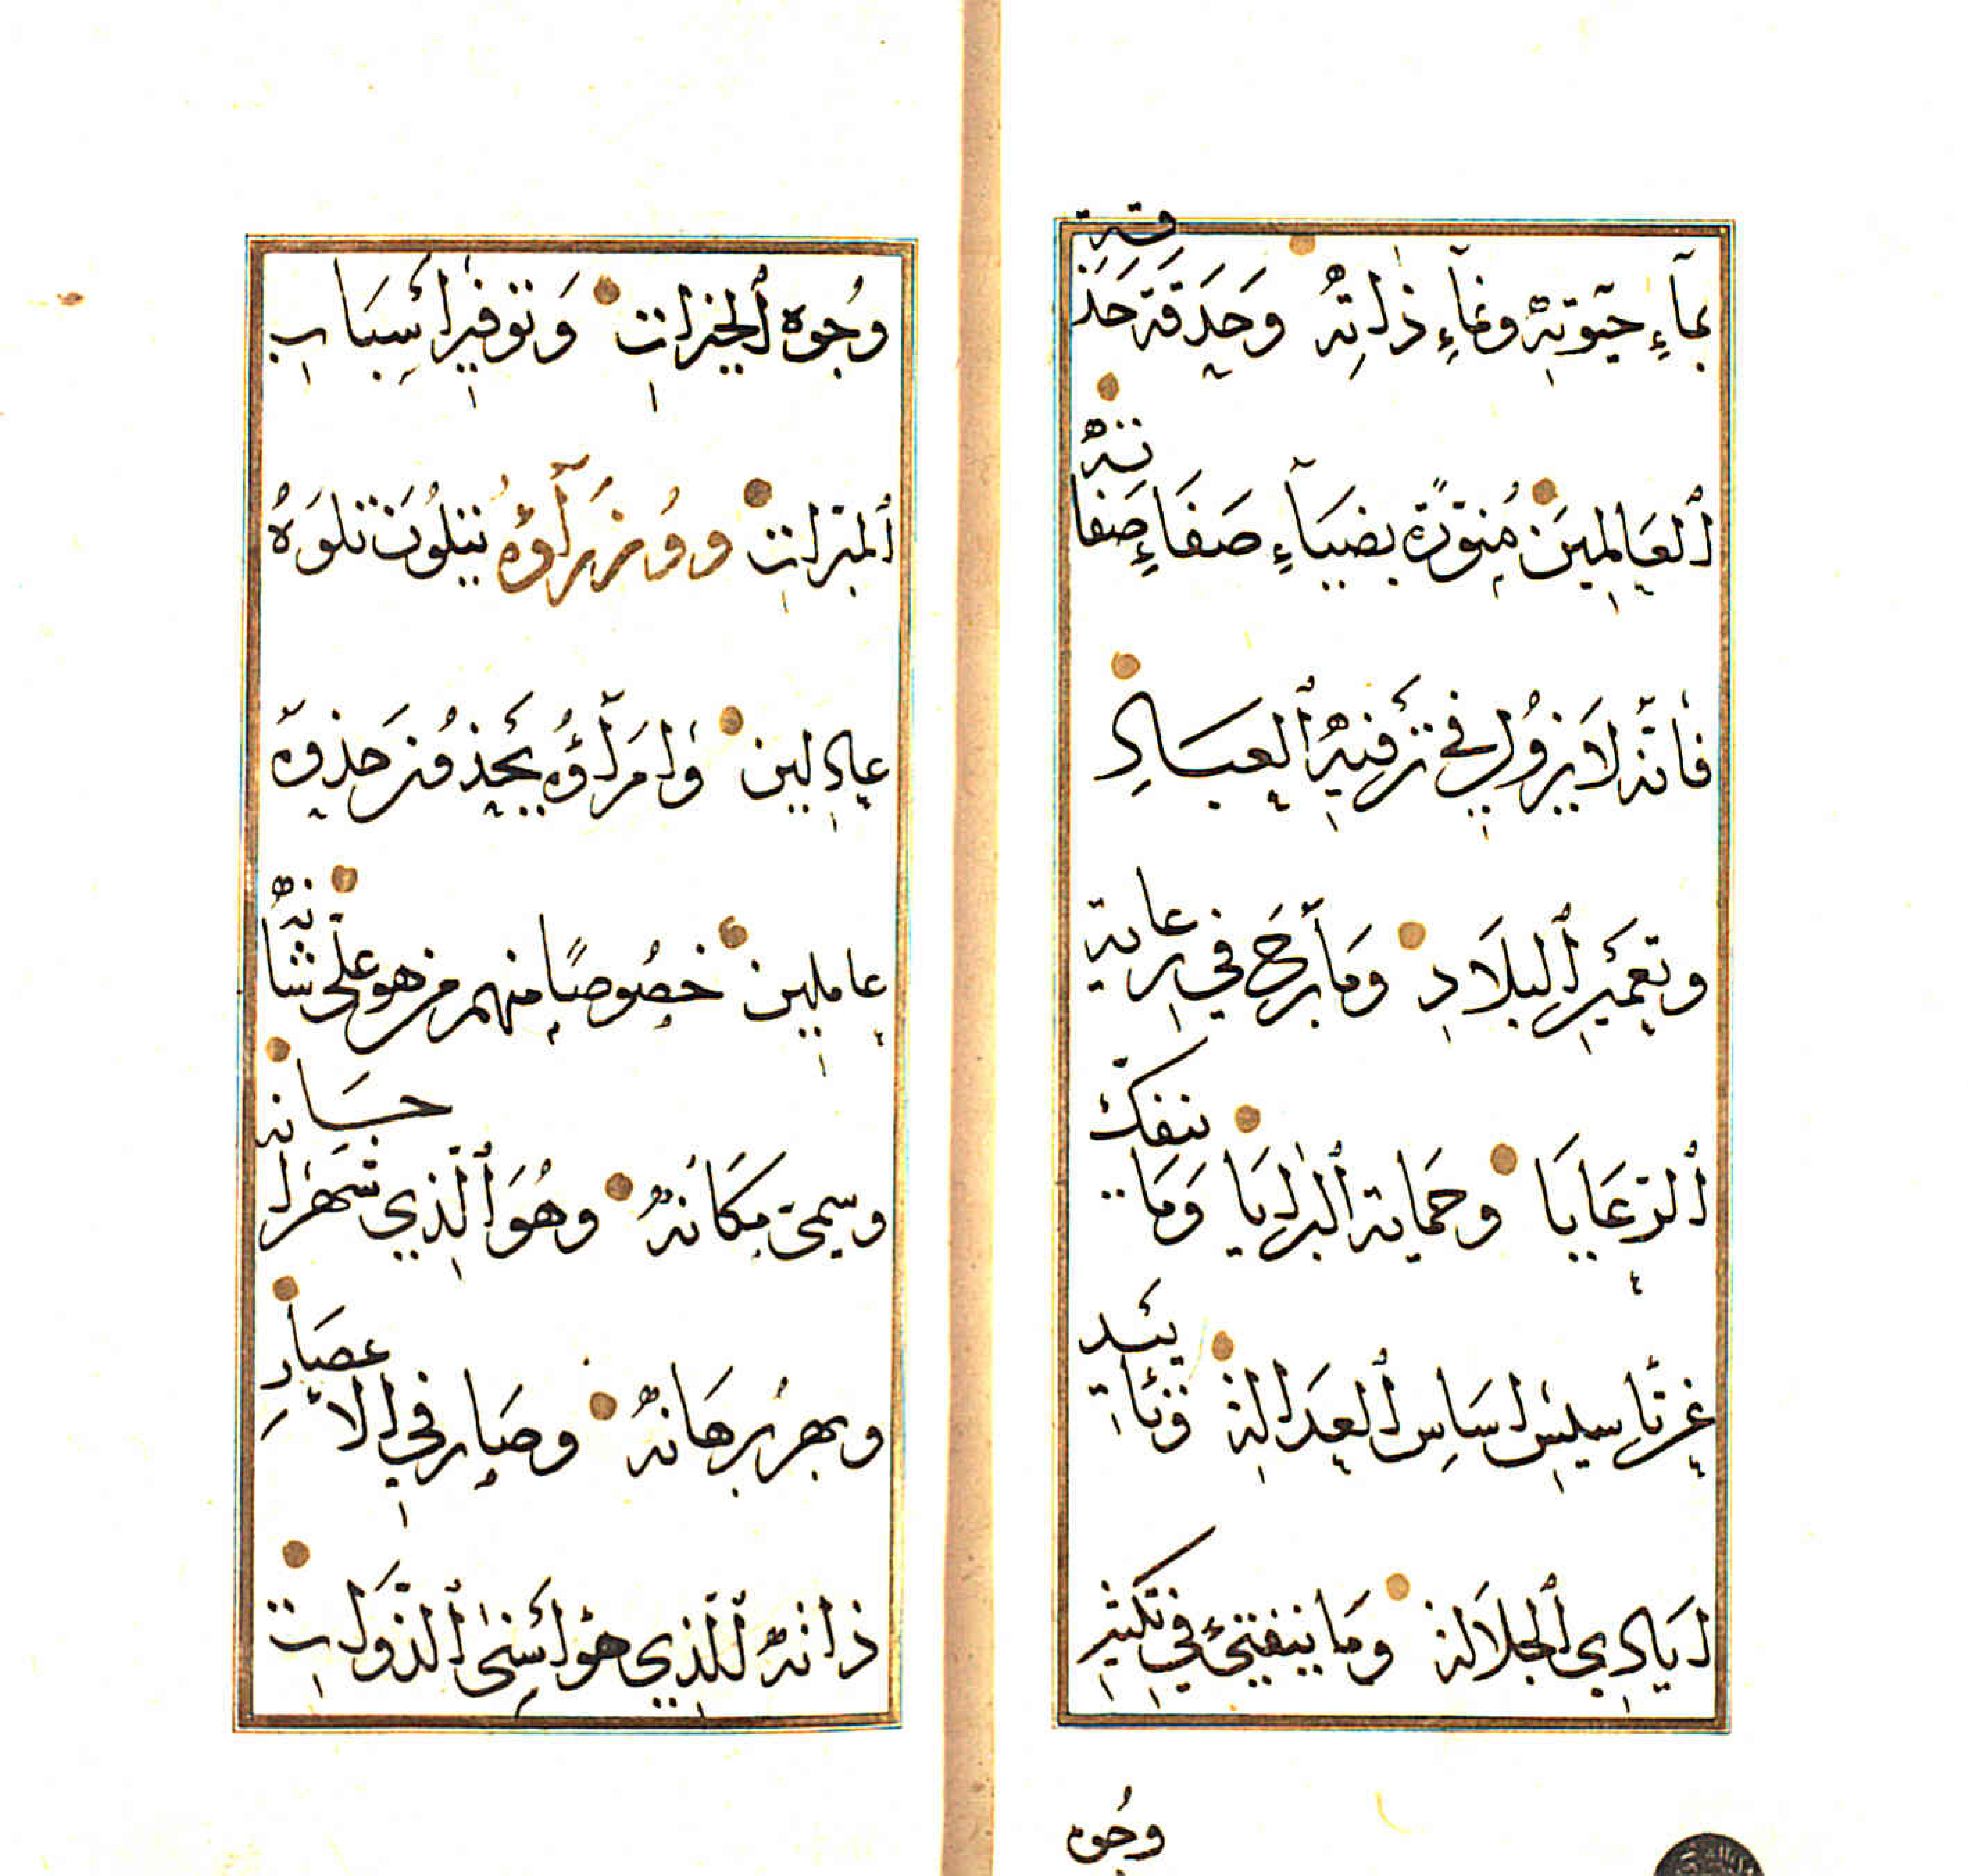 بماءِ حيوته ونماءِ ذاته وحدقة حذقة
العالمين منورة بضياءِ صفاءِ صفاته
فانه لا يزول في ترفيه العباد
وتعمير البلاد وما برح في رعاية
الرعايا وحماية البرايا وما ينفك
عن تأسيس اساس العدالة وتأييد
ايادي الجلالة وما ينفتئ في تكثير
وجوه
وجوه الخيرات وتوفير أسباب
المبرات ووزرآؤه يتلون تلوه
عادلين وامرآؤه يحذون حذوه
عاملين خصوصًا منهم من هو على شأنه
وسمى مكانه وهو الذي شهر احسانه
وبهر برهانه وصار في الاعصار
ذاته للذي هو أسنى الذوات